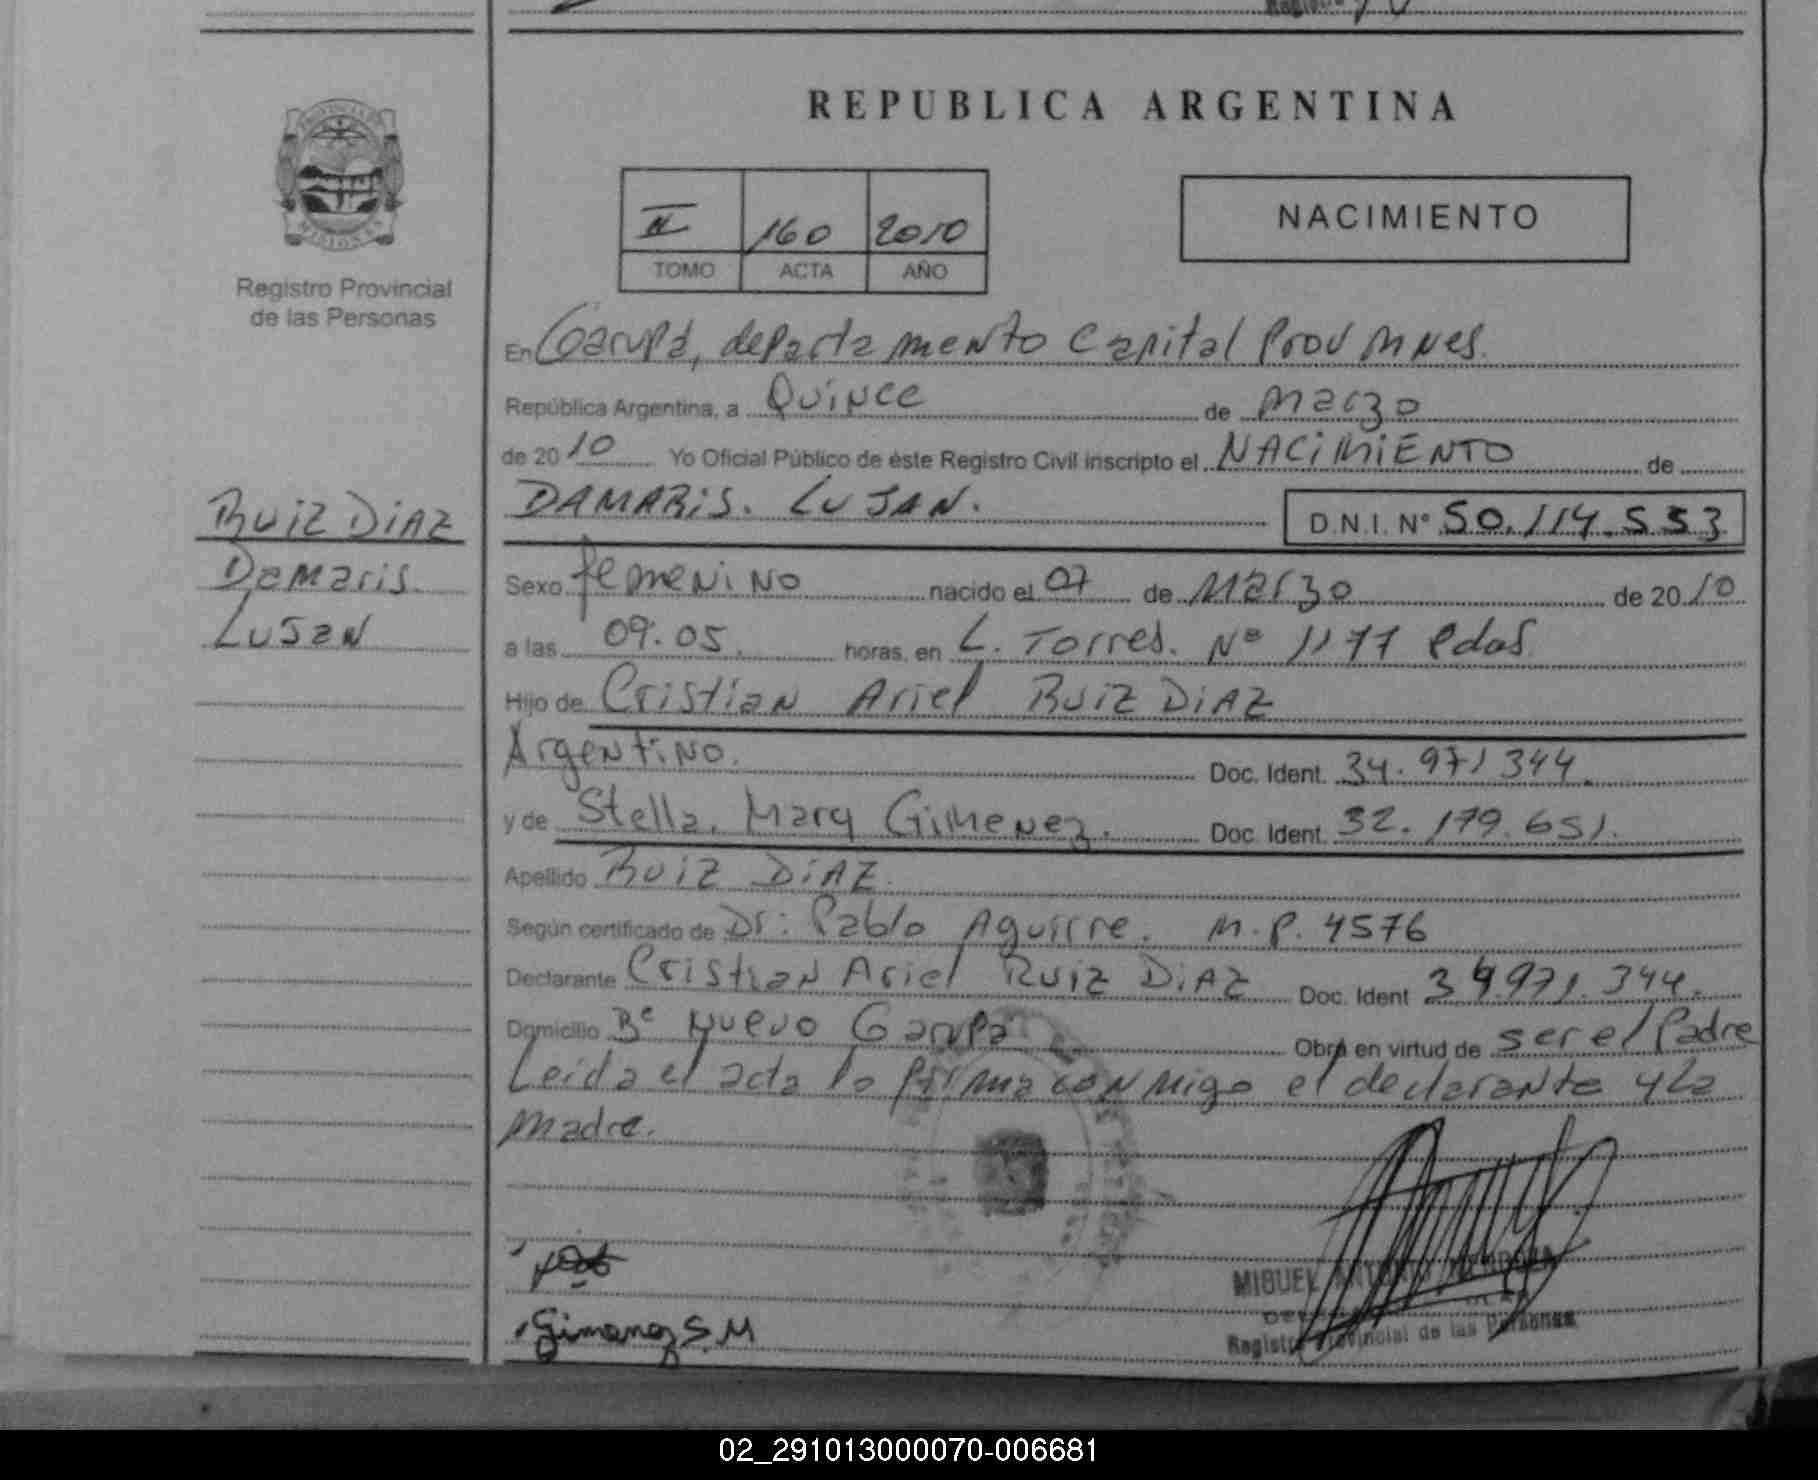 REPUBLICA ARGENTINA
PROVINCIA DE
MISIONES
Registro Provincial
de las Personas
II 160 2010
TOMO ACTA AÑO
NACIMIENTO
En Garupá, departamento Capital Prov Mnes.
República Argentina, a Quince de Marzo
de 2010 Yo Oficial Público de éste Registro Civil inscripto el NACIMIENTO de
DAMARIS. LUJAN. D.N.I. N° 50.114.553
RUIZ DIAZ
Damaris.
LUJAN
Sexo femenino nacido el 07 de Marzo de 2010
a las 09.05. horas, en L. Torres. Nº 1177 Pdas.
Hijo de Cristian Ariel RUIZ DIAZ
Argentino. Doc. Ident. 34.971344.
y de Stella. Mary Gimenez. Doc. Ident. 32.179.651.
Apellido RUIZ DIAZ.
Según certificado de Dr: Pablo Aguirre. M.P. 4576
Declarante Cristian Ariel Ruiz DIAZ Doc. Ident 34.971.344.
Domicilio Bº Nuevo Garupa Obra en virtud de ser el Padre
Leida el acta lo firma conmigo el declarante y la
Madre.
Gimenez S.M
MIGUEL ANTONIO
Registro Provincial de las Personas
02_291013000070-006681